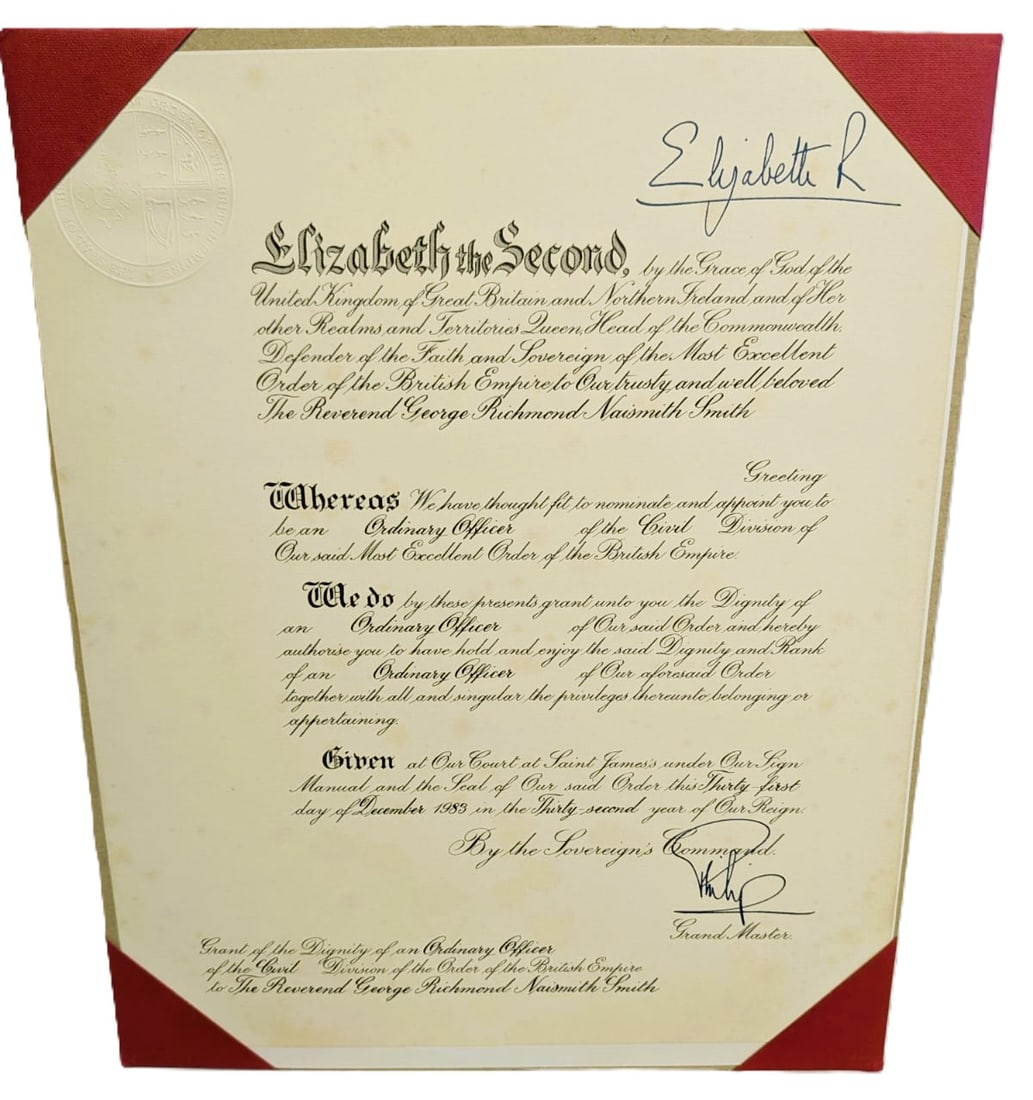 Elizabeth R
Elizabeth the Second, by the Grace of God of the
United Kingdom of Great Britain and Northern Ireland and of Her
other Realms and Territories Queen, Head of the Commonwealth,
Defender of the Faith and Sovereign of the Most Excellent
Order of the British Empire to Our trusty and well beloved
The Reverend George Richmond Naismith Smith
Greeting
Whereas We have thought fit to nominate and appoint you to
be an Ordinary Officer of the Civil Division of
Our said Most Excellent Order of the British Empire
We do by these presents grant unto you the Dignity of
an Ordinary Officer of Our said Order and hereby
authorise you to have hold and enjoy the said Dignity and Rank
of an Ordinary Officer of Our aforesaid Order
together with all and singular the privileges thereunto belonging or
appertaining.
Given at Our Court at Saint James's under Our Sign
Manual and the Seal of Our said Order this Thirty-first
day of December 1983 in the Thirty-second year of Our Reign.
By the Sovereign's Command.
Philip
Grand Master.
Grant of the Dignity of an Ordinary Officer
of the Civil Division of the Order of the British Empire
to The Reverend George Richmond Naismith Smith